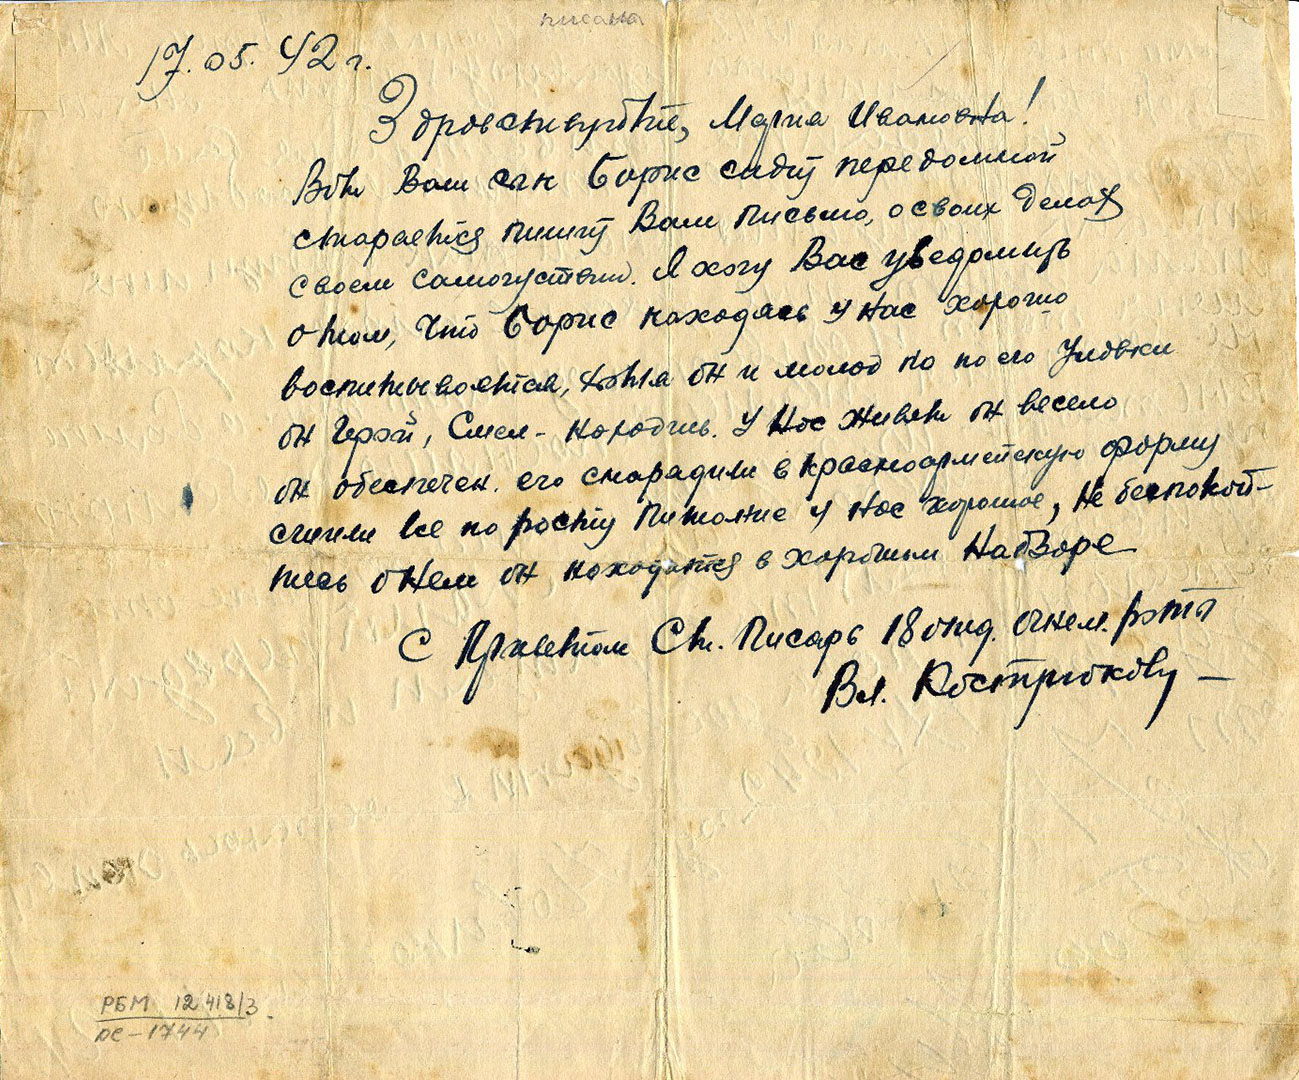 писана
17.05.42 г.
Здравствуйте, Мария Ивановна!
Вот Ваш сын Борис сидит передомной
старается пишит Вам письмо, о своих делах
своем самочуствии. Я хочу Вас уведомить
о том, что Борис находясь у нас хорошо
воспитывается, хотя он и молод но по его уловки
он герой, Смел-находчив. У Нас живет он весело
он обеспечен. его снарядили в красноармейскую форму
сшили все по росту питание у нас хорошое, Не беспокой-
тесь о нем он находится в хорошем Надзоре
С Приветом Ст. Писарь 18 отд. огнем. роты
Вл. Кострюкову
РБМ 12418/3
ДС-1744